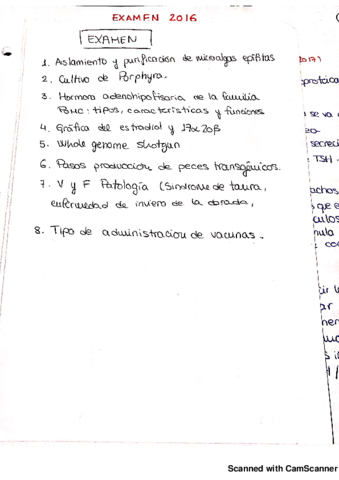 EXAMEN 2016
EXAMEN
1. Aislamiento y purificación de microalgas epífitas
2. Cultivo de Porphyra.
3. Hormona adenohipofisaria de la familia
POMC: tipos, características y funciones
4. Gráfica del estradiol y 17α20β
5. Whole genome shotgun
6. Pasos producción de peces transgénicos.
7. V y F Patología (Síndrome de taura,
enfermedad de invierno de la dorada,
8. Tipo de administracion de vacunas.
2017)
se va
secreci
TSH
achos
que e
culos
nula
co
ar
her
Scanned with CamScanner